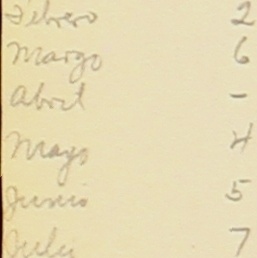 Febrero 2
Margo 6
Abril -
Mayo 4
Junio 5
Julio 7